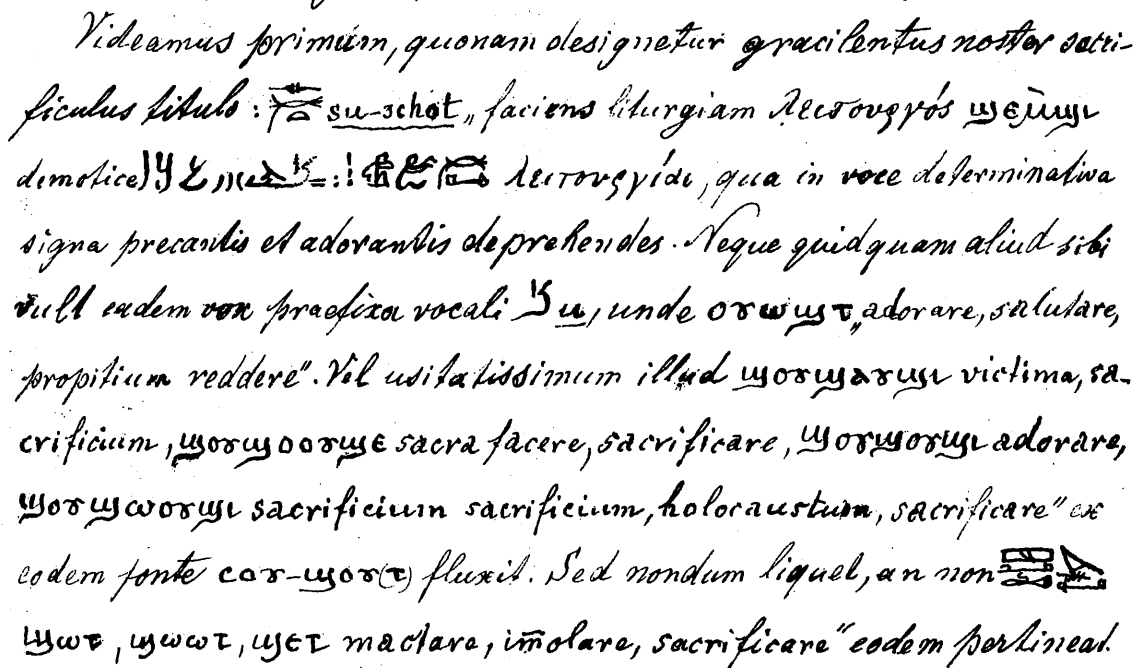 Videamus primum, quonam designetur gracilentus noster sacri-
ficulus titulo : su-schot „ faciens liturgiam λειτουργός ϣⲉⲙ̅ϣⲓ
demotice = : λειτουργίαι, qua in voce determinativa
signa precantis et adorantis deprehendes. Neque quidquam aliud sibi
vult eadem vox praefixa vocali u, unde ⲟⲩⲱϣⲧ „adorare, salutare,
propitium reddere“. Vel usitatissimum illud ϣⲟⲩϣⲁⲩϣⲓ victima, sa-
crificium, ϣⲟⲩϣⲟⲟⲩϣⲉ sacra facere, sacrificare, ϣⲟⲩϣⲟⲩϣⲓ adorare,
ϣⲟⲩϣⲱⲟⲩϣⲓ sacrificium sacrificium, holocaustum, sacrificare“ ex
eodem fonte ⲥⲟⲩ-ϣⲟⲩ(ⲧ) fluxit. Sed nondum liquet, an non
ϣⲱⲧ, ϣⲱⲱⲧ, ϣⲉⲧ mactare, im̅olare, sacrificare“ eodem pertineat.